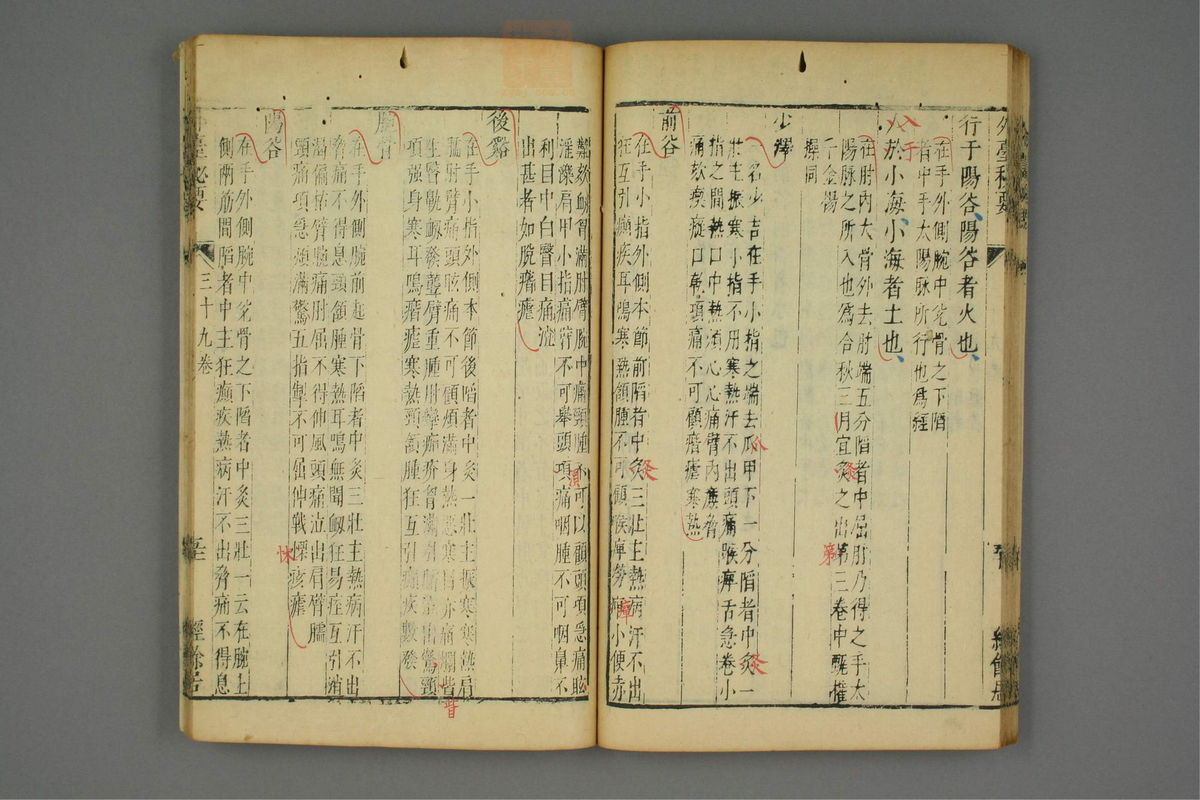 外臺秘要
行于陽谷陽谷者火也
在手外側腕中兊骨之下陷
者中手太陽脉所行也爲經
入於小海小海者土也
在肘内大骨外去肘端五分陷者中屈肘乃得之手太
陽脉之所入也爲合秋三月宜灸之出第三卷中甄權
千金楊
操同
少澤
一名少吉在手小指之端去爪甲下一分陷者中灸一
壯主振寒小指不用寒熱汗不出頭痛喉痺舌急卷小
指之間熱口中熱煩心心痛臂内廉脅
痛欬瘈瘲口乾項痛不可顧瘖瘧寒熱
前谷
在手小指外側本節前陷者中灸三壯主熱病汗不出
狂互引癲疾耳鳴寒熱頷腫不可顧喉痺勞病小便赤
難欬衂胷滿肘臂腕中痛頸腫不可以顧頭項急痛眩
淫濼肩甲小指痛臂不可舉頭項痛咽腫不可咽鼻不
利目中白瞖目痛泣
出甚者如脫瘖瘧
後谿
在手小指外側本節後陷者中灸一壯主振寒寒熱肩
臑肘臂痛頭眩痛不可顧煩滿身熱惡寒目赤痛爛眥
生瞖鼽衂發聾臂重腫肘攣痂疥胷滿引臑泣出驚頸
項强身寒耳鳴瘖瘧寒熱頸頷腫狂互引癲疾數發
腕骨
在手外側腕前起骨下陷者中灸三壯主熱病汗不出
脅痛不得息頸頷腫寒熱耳鳴無聞衂狂易痓互引消
渴偏枯臂腕痛肘屈不得伸風頭痛泣出肩臂臑
頸痛項急煩滿驚五指掣不可屈伸戰慄痎瘧
陽谷
在手外側腕中兊骨之下陷者中灸三壯一云在腕上
側兩筋間陷者中主狂癲疾熱病汗不出脅痛不得息
外臺秘要
三十九卷
經餘居